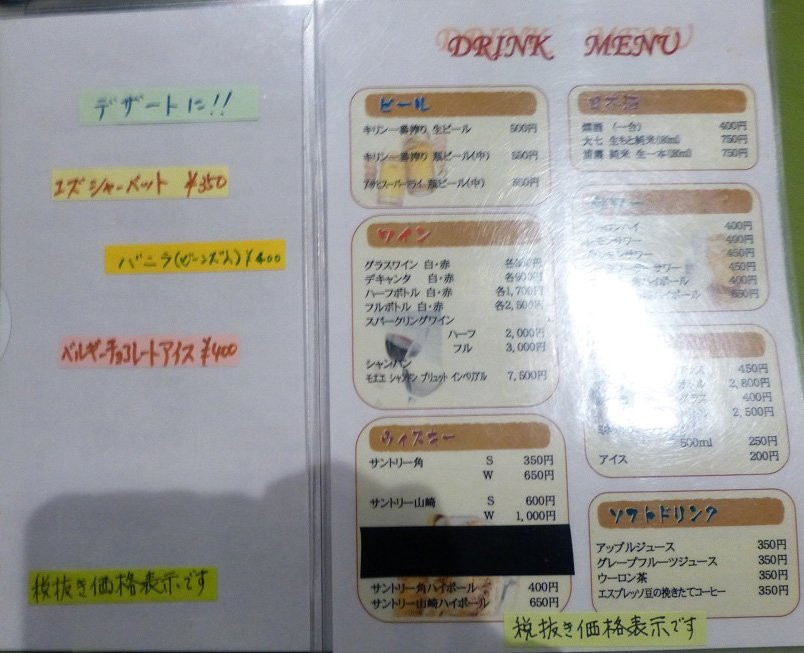 デザートに!!
ユズシャーベット ¥350
バニラ(ビーンズ入) ¥400
ベルギーチョコレートアイス ¥400
税抜き価格表示です
DRINK MENU
ビール
キリン一番搾り 生ビール 500円
キリン一番搾り 瓶ビール(中) 550円
アサヒスーパードライ 瓶ビール(中)
ワイン
グラスワイン 白・赤
デキャンタ 白・赤
ハーフボトル 白・赤 各1,700円
フルボトル 白・赤
スパークリングワイン
ハーフ 2,000円
フル 3,000円
シャンパン
モエエ シャンドン ブリュット インペリアル 7,500円
ウィスキー
サントリー角 S 350円
W 650円
サントリー山崎 S 600円
W 1,000円
サントリー角ハイボール 400円
サントリー山崎ハイボール 650円
日本酒
燗酒 (一合) 400円
大七 生もと純米(180ml) 750円
純米 生一本(180ml) 750円
400円
サワー 400円
450円
サワー 450円
ハイボール 400円
ハイボール 650円
450円
2,800円
グラス 400円
2,500円
500ml 250円
アイス 200円
ソフトドリンク
アップルジュース 350円
グレープフルーツジュース 350円
ウーロン茶 350円
エスプレッソ豆の挽きたてコーヒー 350円
税抜き価格表示です